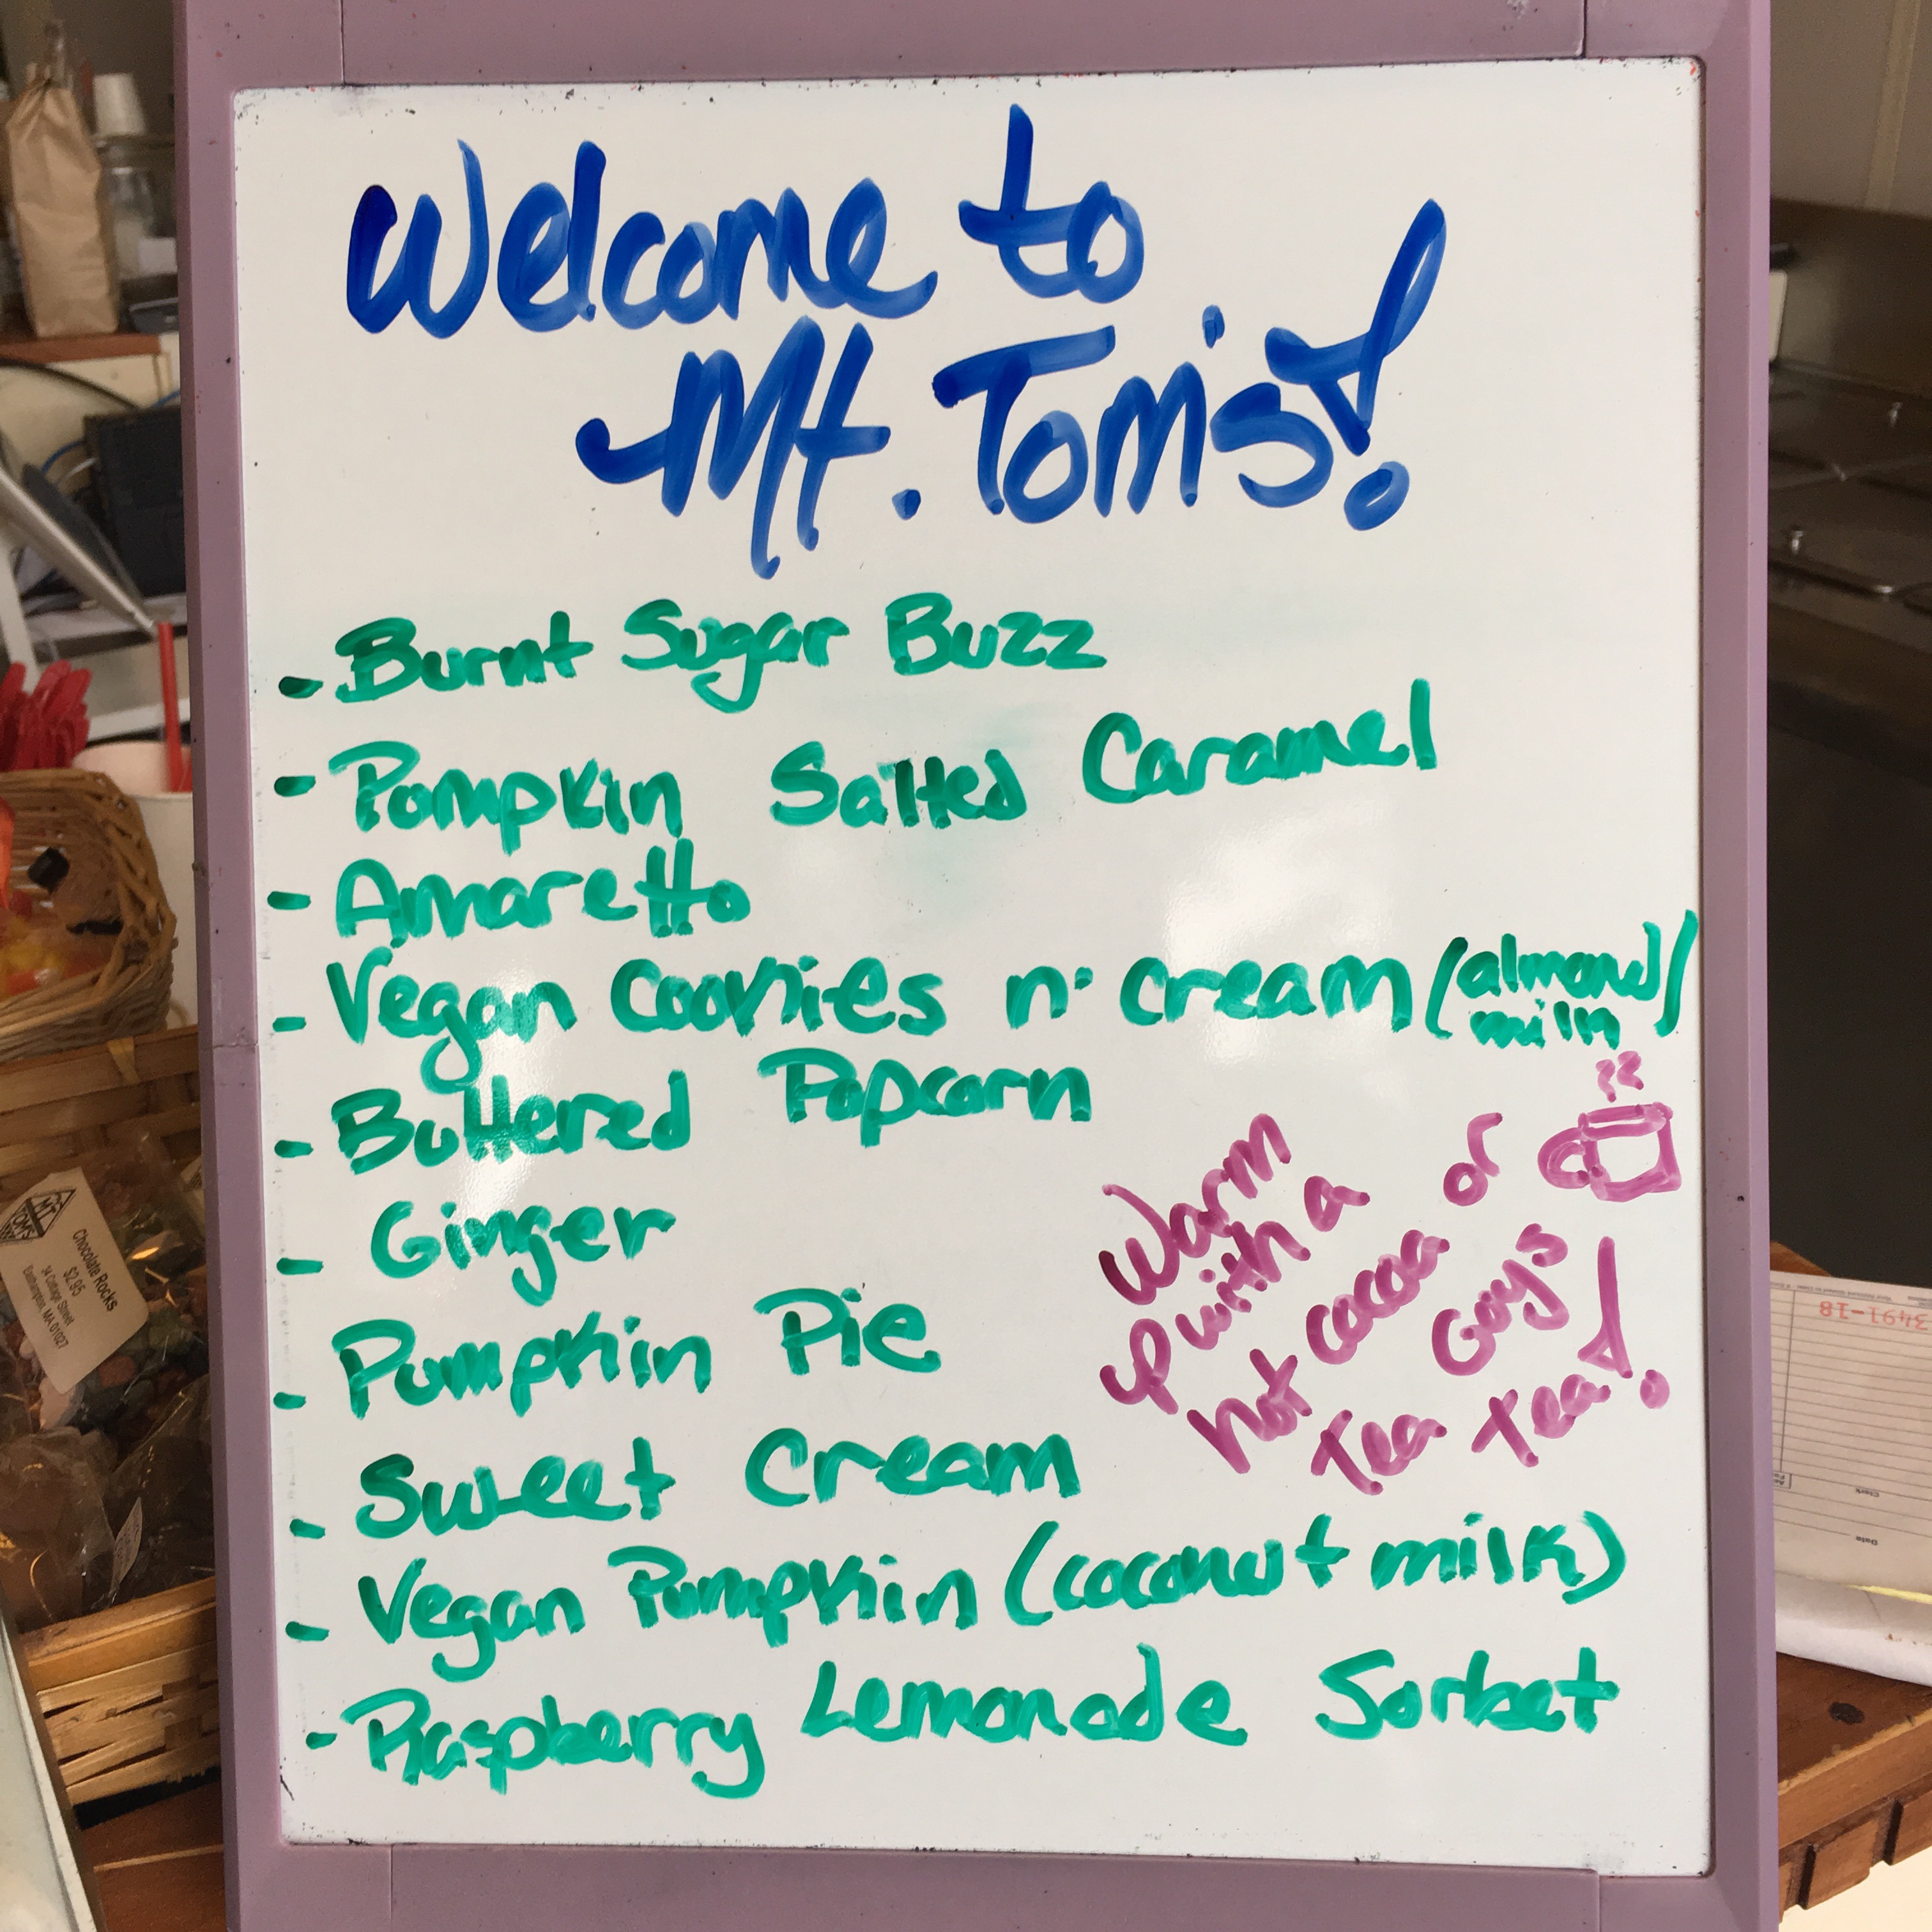 Welcome to
Mt. Tom's!
- Burnt Sugar Buzz
- Pumpkin Salted Caramel
- Amaretto
- Vegan Cookies n' Cream (almond
milk)
- Buttered Popcorn
- Ginger
- Pumpkin Pie
- Sweet Cream
- Vegan Pumpkin (coconut milk)
- Raspberry Lemonade Sorbet
Warm
up with a
hot cocoa or
Gay's
Tea Tea!
MT
TOM'S
Chocolate Rocks
$2.95
34 Cottage Street
Easthampton, MA 01027
3491-18
Clerk
Date